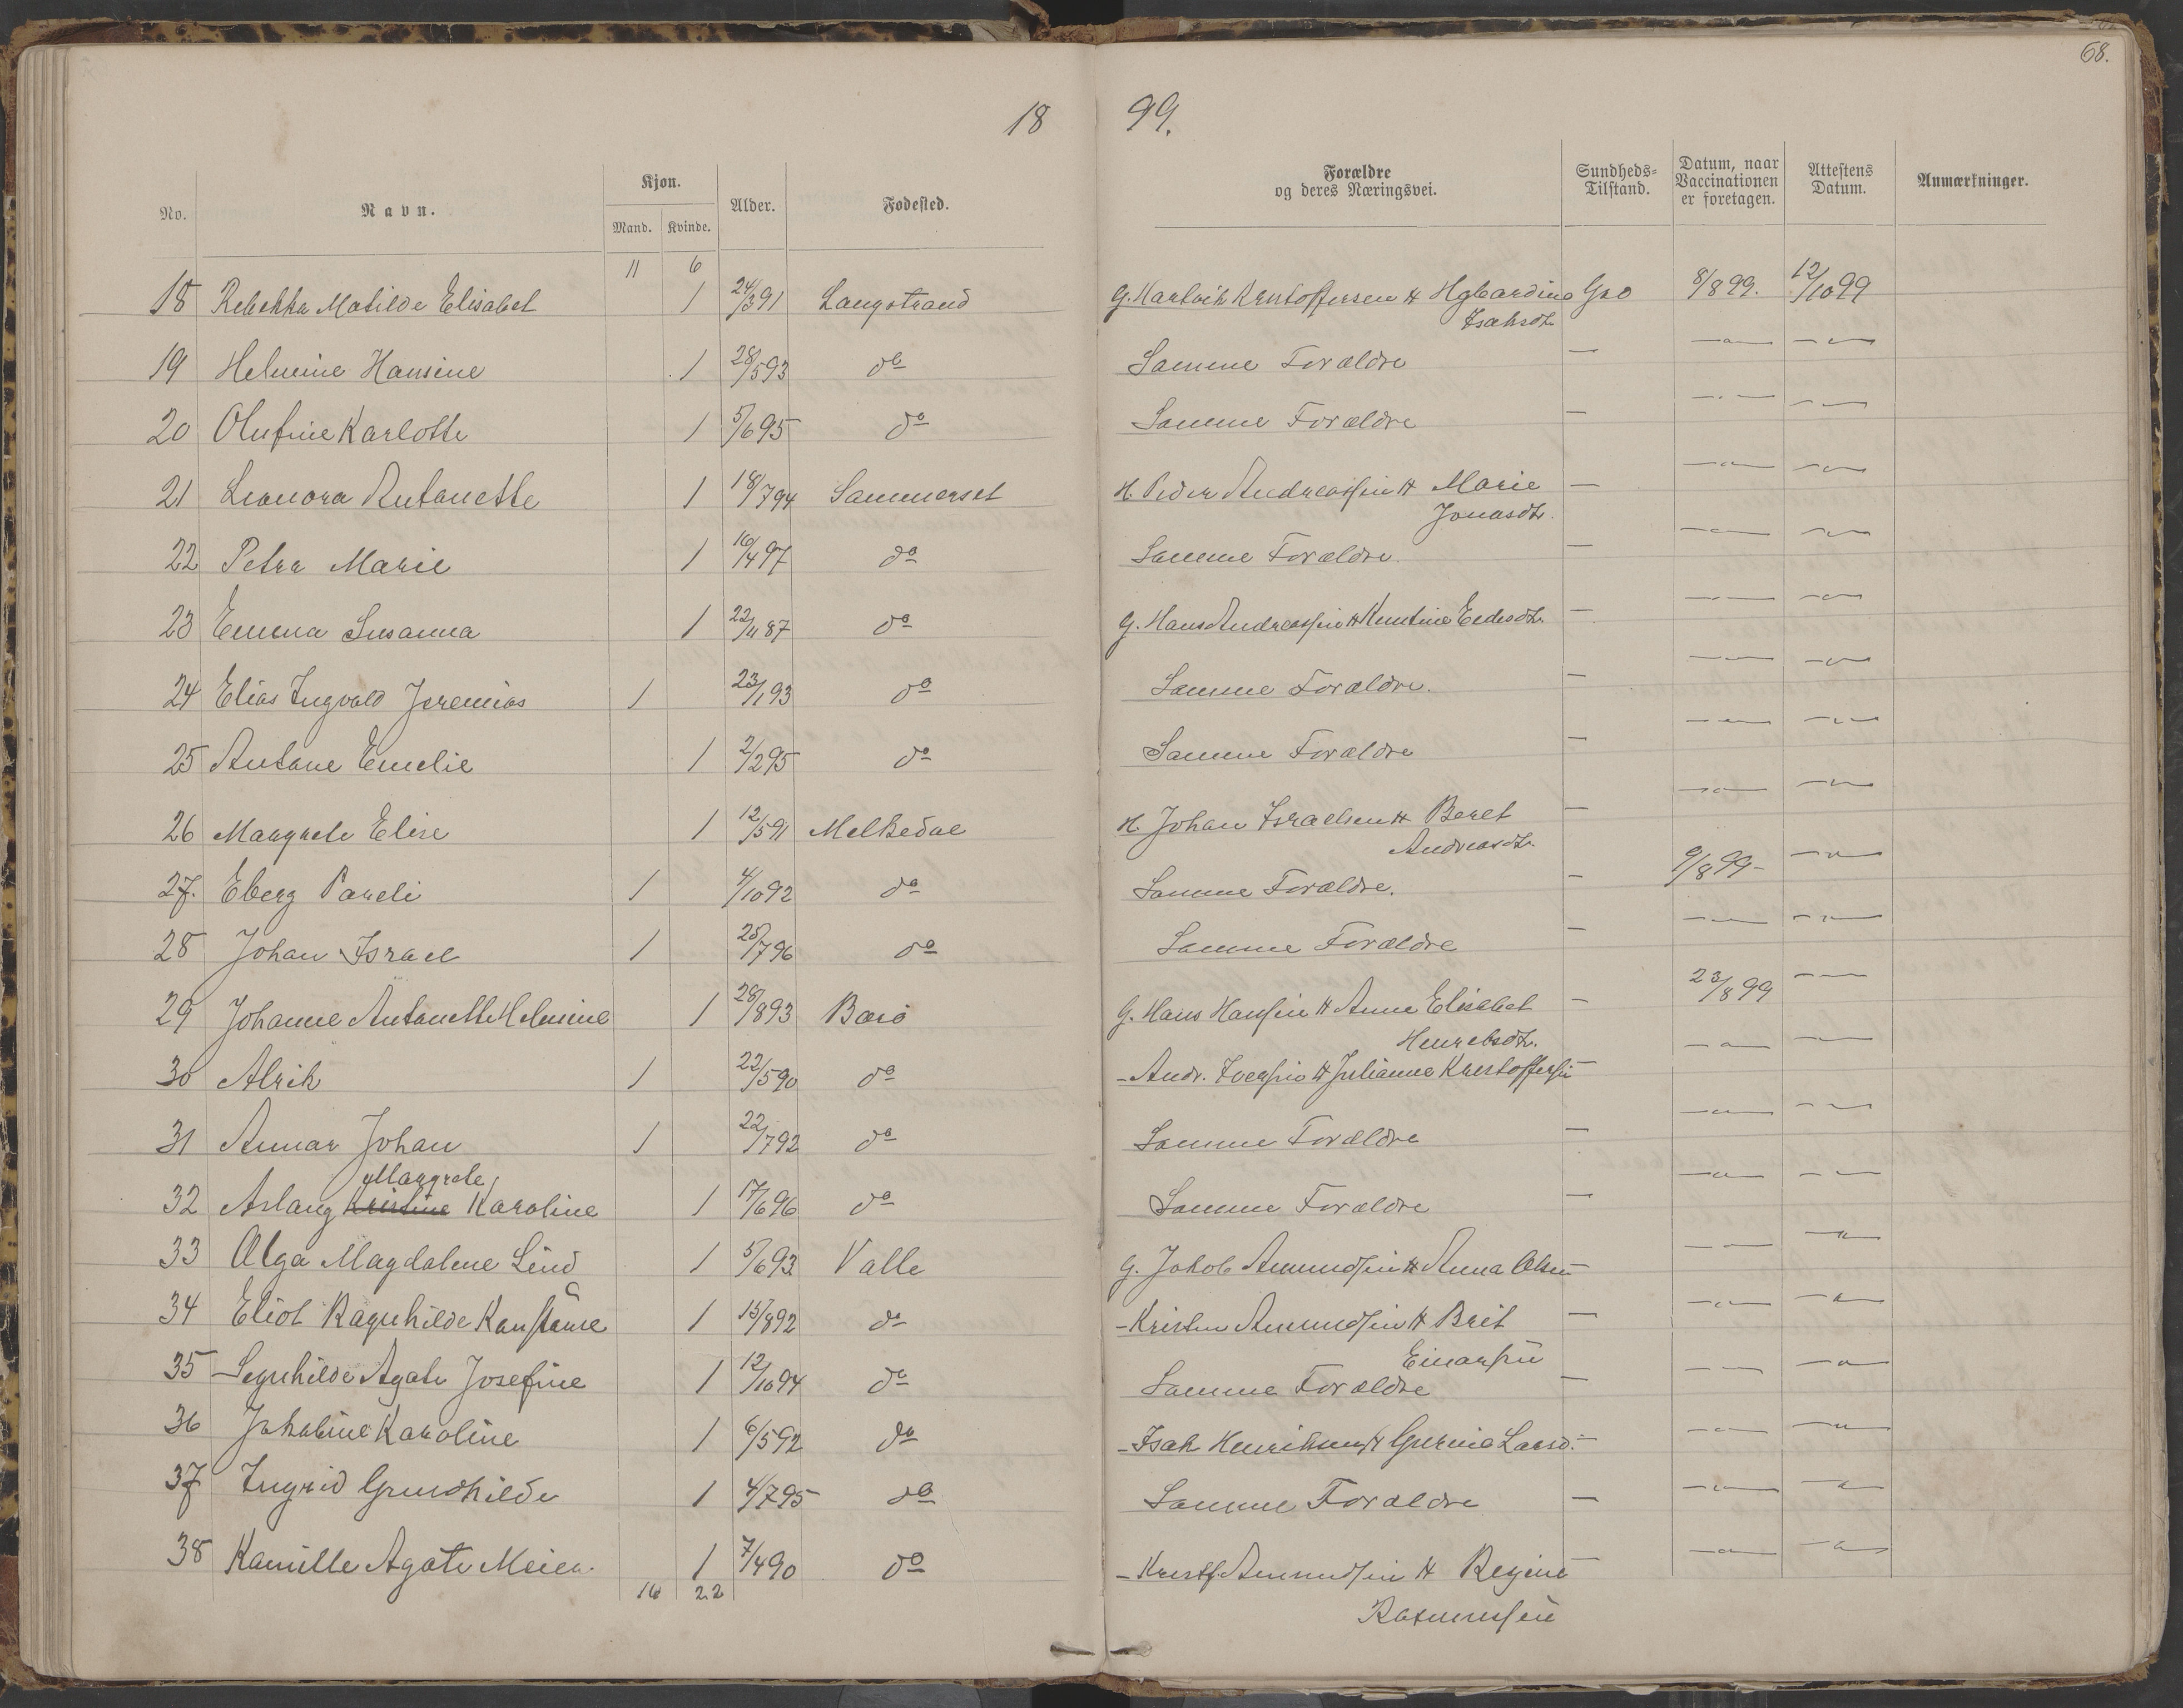 68.
18 99.
No. Navn. Kjøn. Mand. Kvinde. Alder. Fødested. Forældre og deres Næringsvei. Sundheds-Tilstand. Datum, naar Vaccinationen er foretagen. Attestens Datum. Anmærkninger.
11 6
18 Rebekka Matilde Elisabet 1 24/3 91 Langstrand G. Hartvik Kristoffersen & Isaksdt. God 8/8 99. 12/10 99
19 Helmine Hansine 1 28/5 93 do Samme Forældre — —"— —"—
20 Olufine Karlotte 1 5/6 95 do Samme Forældre — —"— —"—
21 Leonora Antonette 1 18/7 94 Sammerset H. Peder Andreassen & Marie Jonasdt. — —"— —"—
22 Petra Marie 1 16/4 97 do Samme Forældre. — —"— —"—
23 Emma Susanna 1 22/11 87 do G. Hans Andreassen & — —"— —"—
24 Elias Ingvald Jeremias 1 23/1 93 do Samme Forældre. — —"— —"—
25 Antone Emelie 1 2/2 95 do Samme Forældre — —"— —"—
26 Margrete Elise 1 12/5 91 Melkedal H. Johan Israelsen & Beret Andreasdt. — —"— —"—
27. Eberg Pareli 1 4/10 92 do Samme Forældre. — 9/8 99– —"—
28 Johan Israel 1 25/7 96 do Samme Forældre — —"— —"—
29 Johanne Antonette Helmine 1 28/8 93 Barø G. Hans Hansen & Anne Elisabet — 23/8 99 —"—
30 Alrik 1 22/5 90 do – Andr. Iversen & Julianne Kristoffersen — —"— —"—
31 Annar Johan 1 22/7 92 do Samme Forældre — —"— —"—
Margrete
32 Aslaug Kristine Karoline 1 17/6 96 do Samme Forældre — —"— —"—
33 Olga Magdalene Lind 1 5/6 93 Valle G. Jakob Amundsen & Anna Olsen — —"— —"—
34 Eliot Ragnhilde Konstanse 1 15/8 92 do – Kristen Amundsen & Brit Einarsen — —"— —"—
35 Segnhilde Agate Josefine 1 12/10 94 do Samme Forældre — —"— —"—
36 Jakobine Karoline 1 6/5 92 do – Isak Henriksen & Larsd. — —"— —"—
37 Ingrid Gundhilde 1 4/7 95 do Samme Forældre — —"— —"—
38 Kamille Agate Meier. 1 7/4 90 do – Kristf. Amundsen & Regine Rasmussen — —"— —"—
16 22